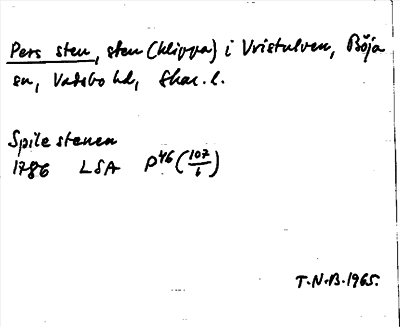 Pers sten, sten (klippa) i Vristulven, Böja
sn, Vadsbo hd, Skar. l.
Spile stenen
1786 LSA P46 (107/6)
T.N.B. 1965.